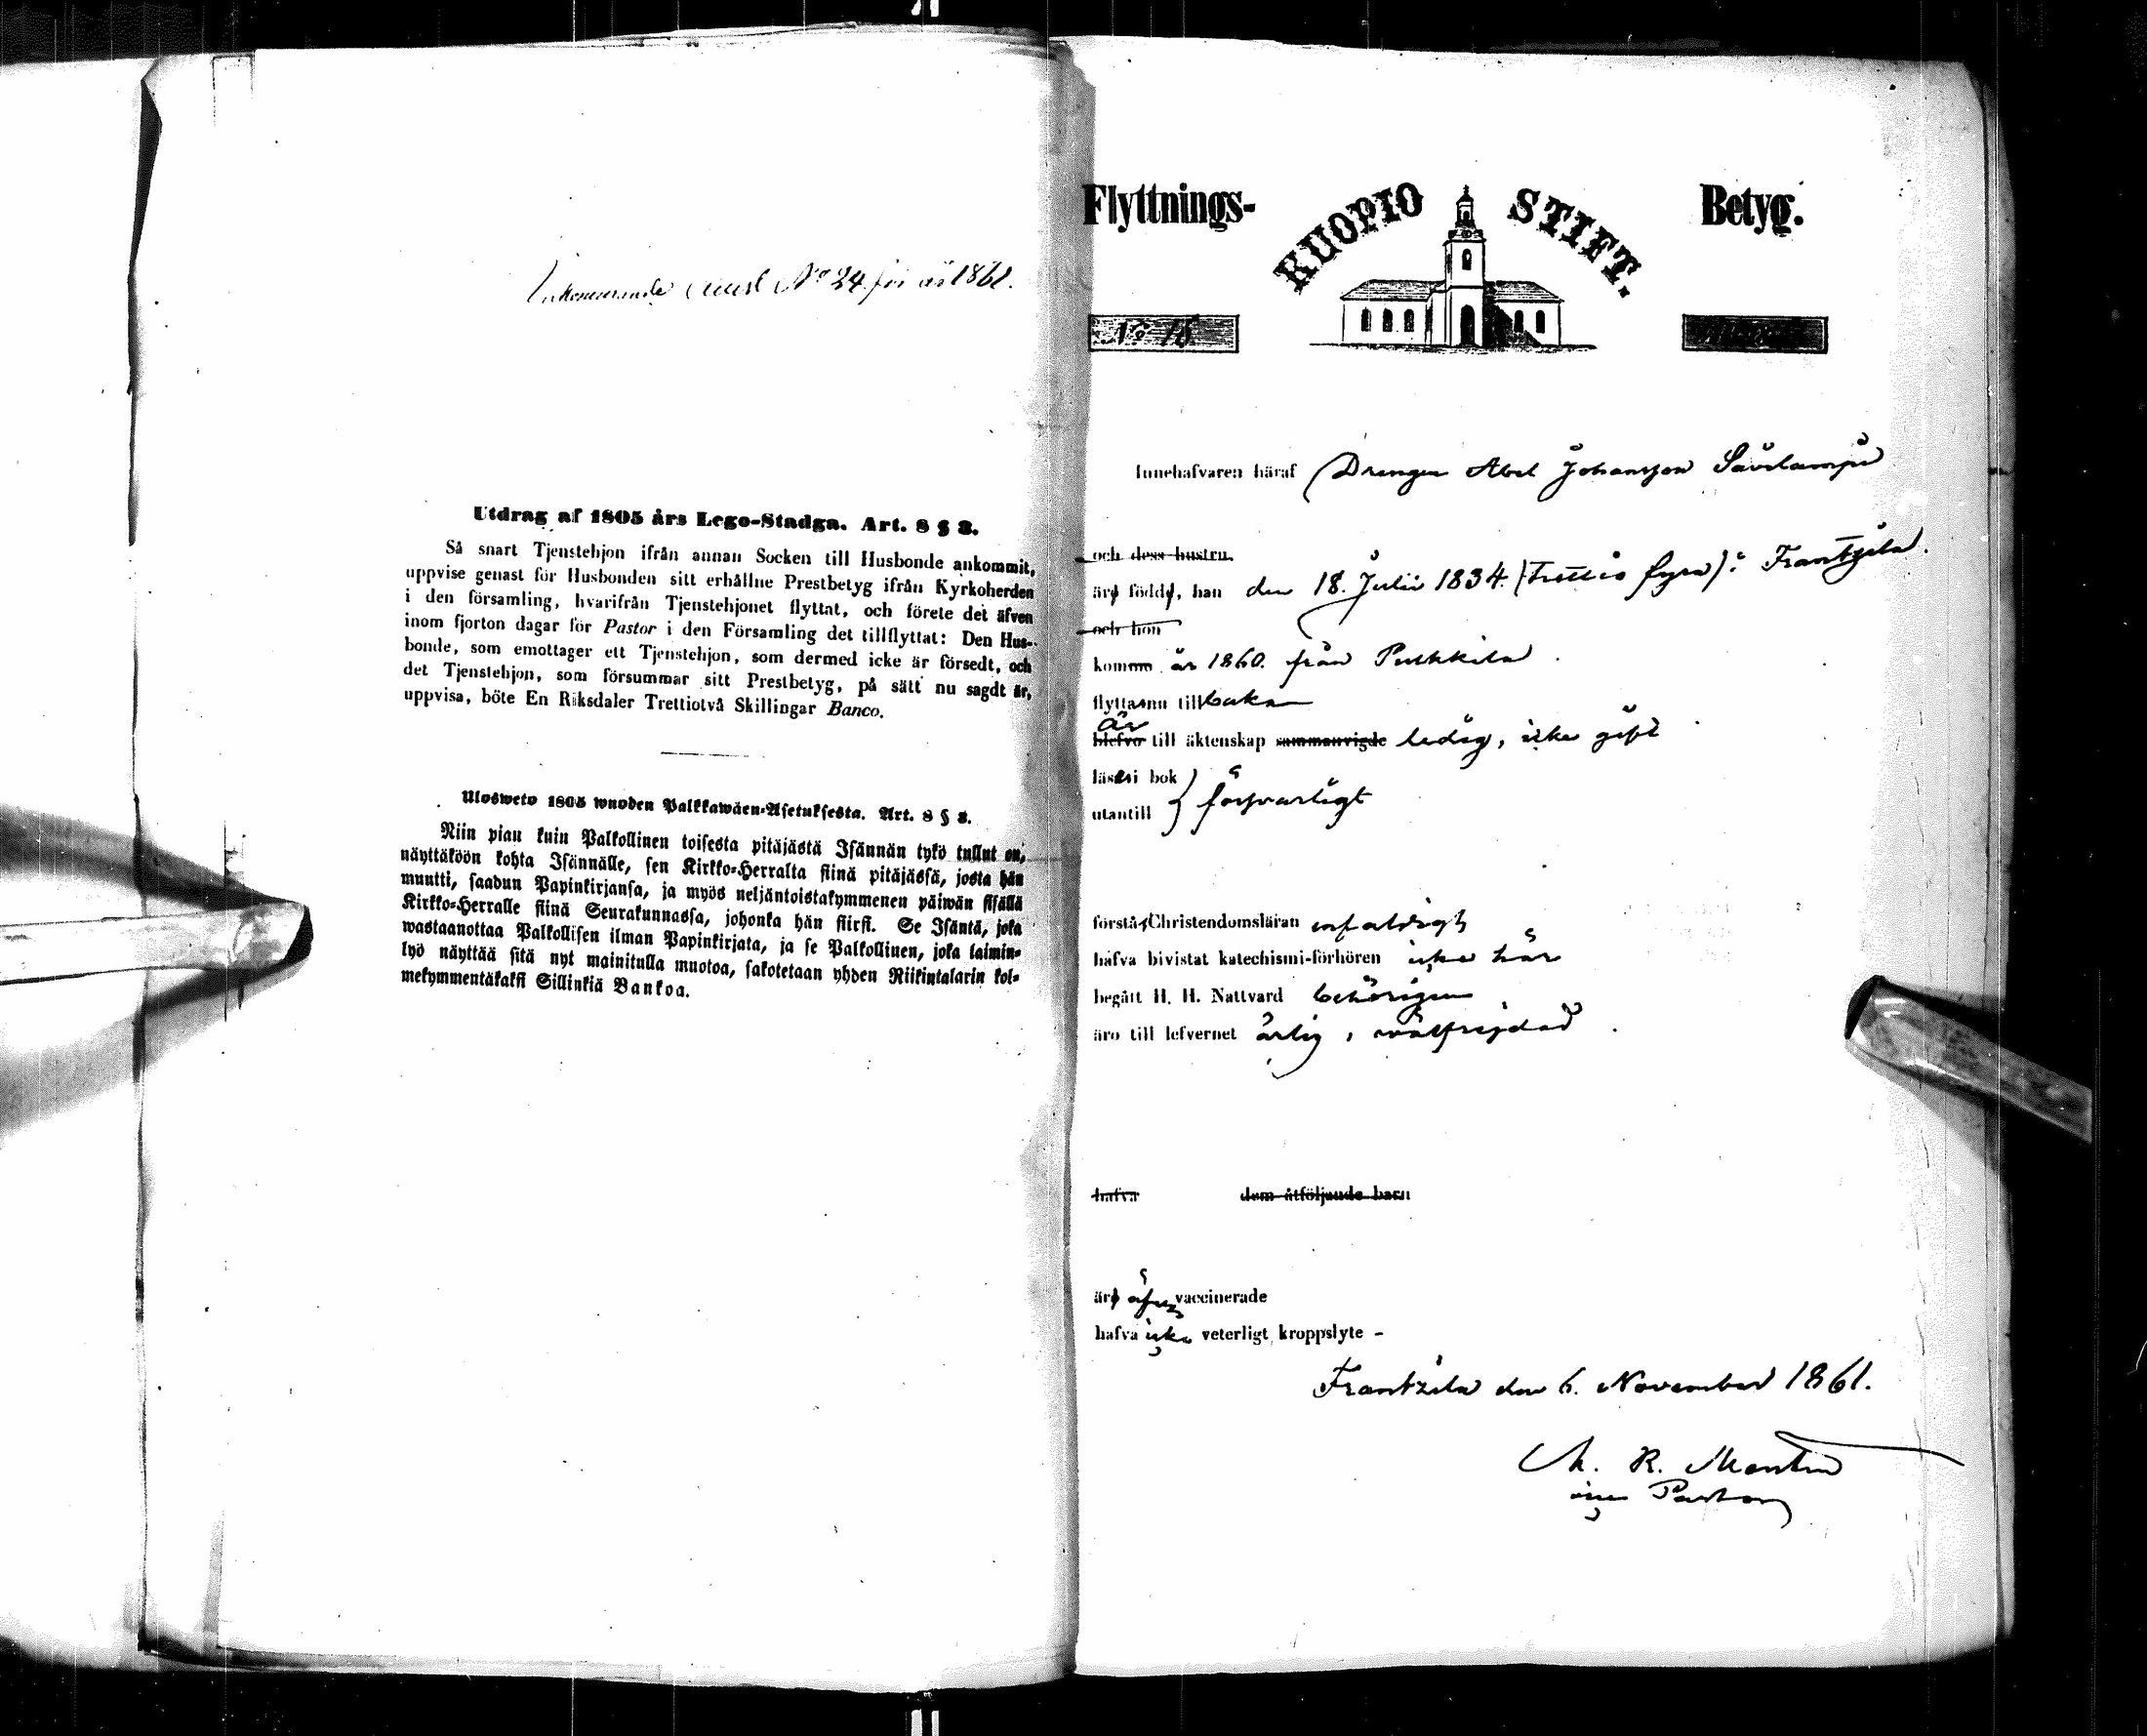 Inkommande attest No 24 för år 1861.
Utdrag af 1805 års Lego-Stadga. Art. 8 § 3.
Så snart Tjenstehjon ifrån annan Socken till Husbonde ankommit,
uppvise genast för Husbonden sitt erhållne Prestbetyg ifrån Kyrkoherden
i den församling, hvarifrån Tjenstehjonet flyttat, och förete det äfven
inom fjorton dagar för Pastor i den Församling det tillflyttat: Den Hus-
bonde, som emottager ett Tjenstehjon, som dermed icke är försedt, och
det Tjenstehjon, som försummar sitt Prestbetyg, på sätt nu sagdt är,
uppvisa, böte En Riksdaler Trettiotvå Skillingar Banco.
Ulosweto 1805 wuoden Palkkawäen-Asetuksesta. Art. 8 § 3.
Niin pian kuin Palkollinen toisesta pitäjästä Isännän tykö tullut on,
näyttäköön kohta Isännälle, sen Kirkko-Herralta siinä pitäjässä, josta hän
muutti, saadun Papinkirjansa, ja myös neljäntoistakymmenen päiwän sisällä
Kirkko-Herralle siinä Seurakunnassa, johonka hän siirsi. Se Isäntä, joka
wastaanottaa Palkollisen ilman Papinkirjata, ja se Palkollinen, joka laimin-
lyö näyttää sitä nyt mainitulla muotoa, sakotetaan yhden Riikintalarin kol-
mekymmentäkaksi Sillinkiä Bankoa.
Flyttnings- KUOPIO STIFT. Betyg.
No 18.
Innehafvaren häraf Drengen Abel Johansson Säilampi
och dess hustru
äro födde, han den 18. Julii 1834. (trettio fyra) i Frantzila.
och hon
komm år 1860. från Pulkkila.
flytta nu tillbaka
är
blefvo till äktenskap sammanvigde ledig, icke gift
läser i bok
utantill } försvarligt
förstå Christendomsläran enfaldigt
hafva bivistat katechismi-förhören icke här
begått H. H. Nattvard behörigen
äro till lefvernet ärlig, wälfrejdad.
hafva dem åtföljande barn
äro äfven vaccinerade
hafva icke veterligt kroppslyte -
Frantzila den 6. November 1861.
M. R.
Pastor